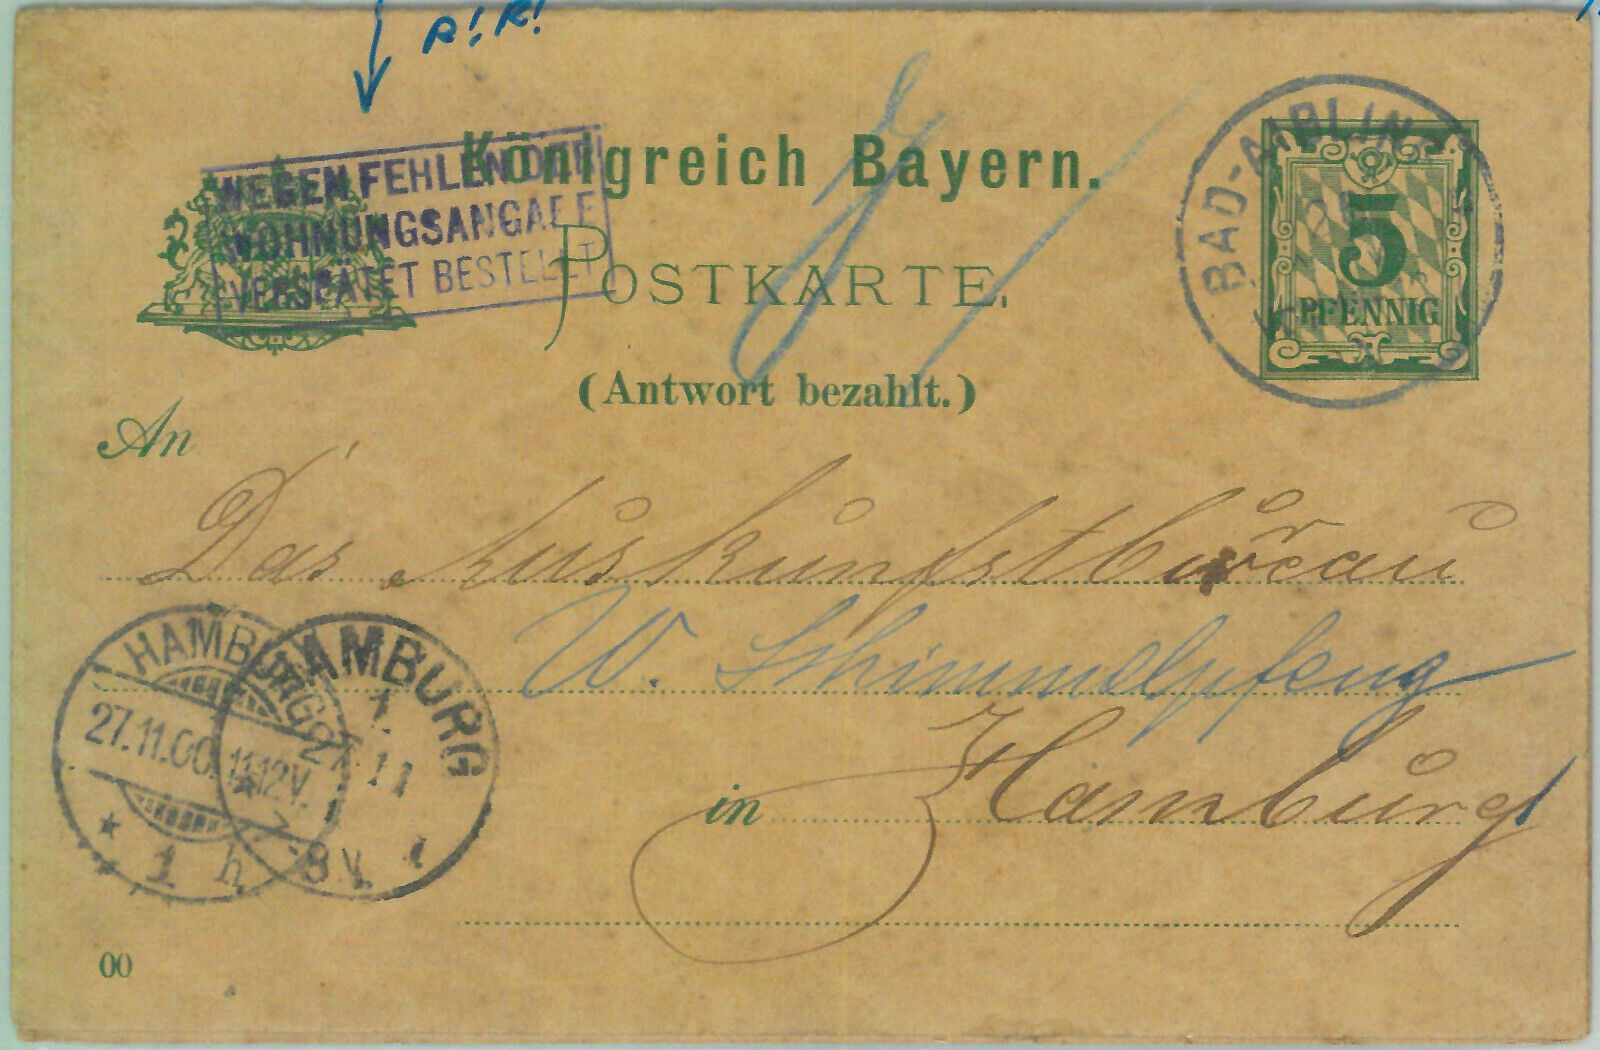 R! R!
WEGEN FEHLEN DER
WOHNUNGSANGABE
VERSPÄTET BESTELLT
Königreich Bayern.
POSTKARTE.
(Antwort bezahlt.)
BAD-AIBLING
5
PFENNIG
An
Das Auskunftbüreau
W. Schimmelpfeng
in Hamburg
HAMBURG
27.11.00. 11-12V.
* 1 h
HAMBURG
1.
11
7-8V. 1
00